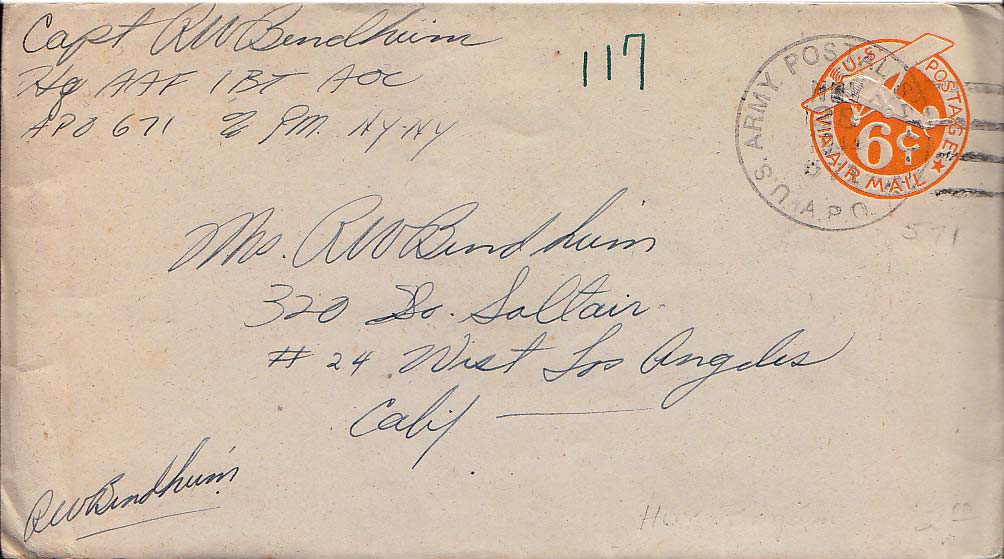 Capt RW Bendheim
Hq AAF IBT AOC
APO 671 % PM. NY-NY
117
U.S. ARMY POSTAL
U.S. POSTAGE
6¢
VIA AIR MAIL
A.P.O.
571
Mrs. RW Bendheim
320 So. Saltair.
# 24 West Los Angeles
Calif
RW Bendheim